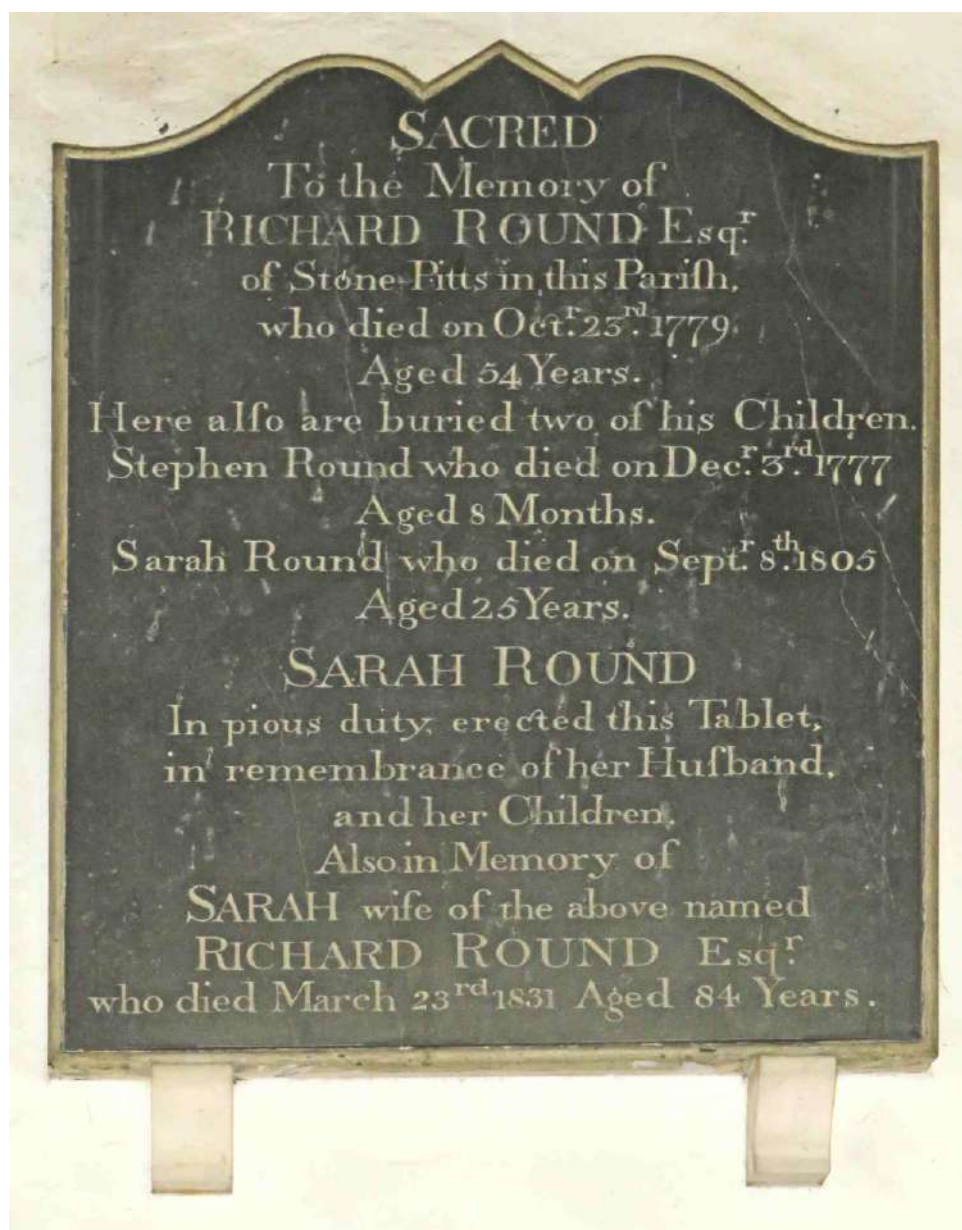 SACRED
To the Memory of
RICHARD ROUND Esqr.
of Stone-Pitts in this Pariſh,
who died on Octr. 23rd. 1779
Aged 54 Years.
Here alſo are buried two of his Children.
Stephen Round who died on Decr. 3rd. 1777
Aged 8 Months.
Sarah Round who died on Septr. 8th. 1805
Aged 25 Years.
SARAH ROUND
In pious duty, erected this Tablet,
in remembrance of her Huſband,
and her Children,
Also in Memory of
SARAH wife of the above named
RICHARD ROUND Esqr.
who died March 23rd 1831 Aged 84 Years.